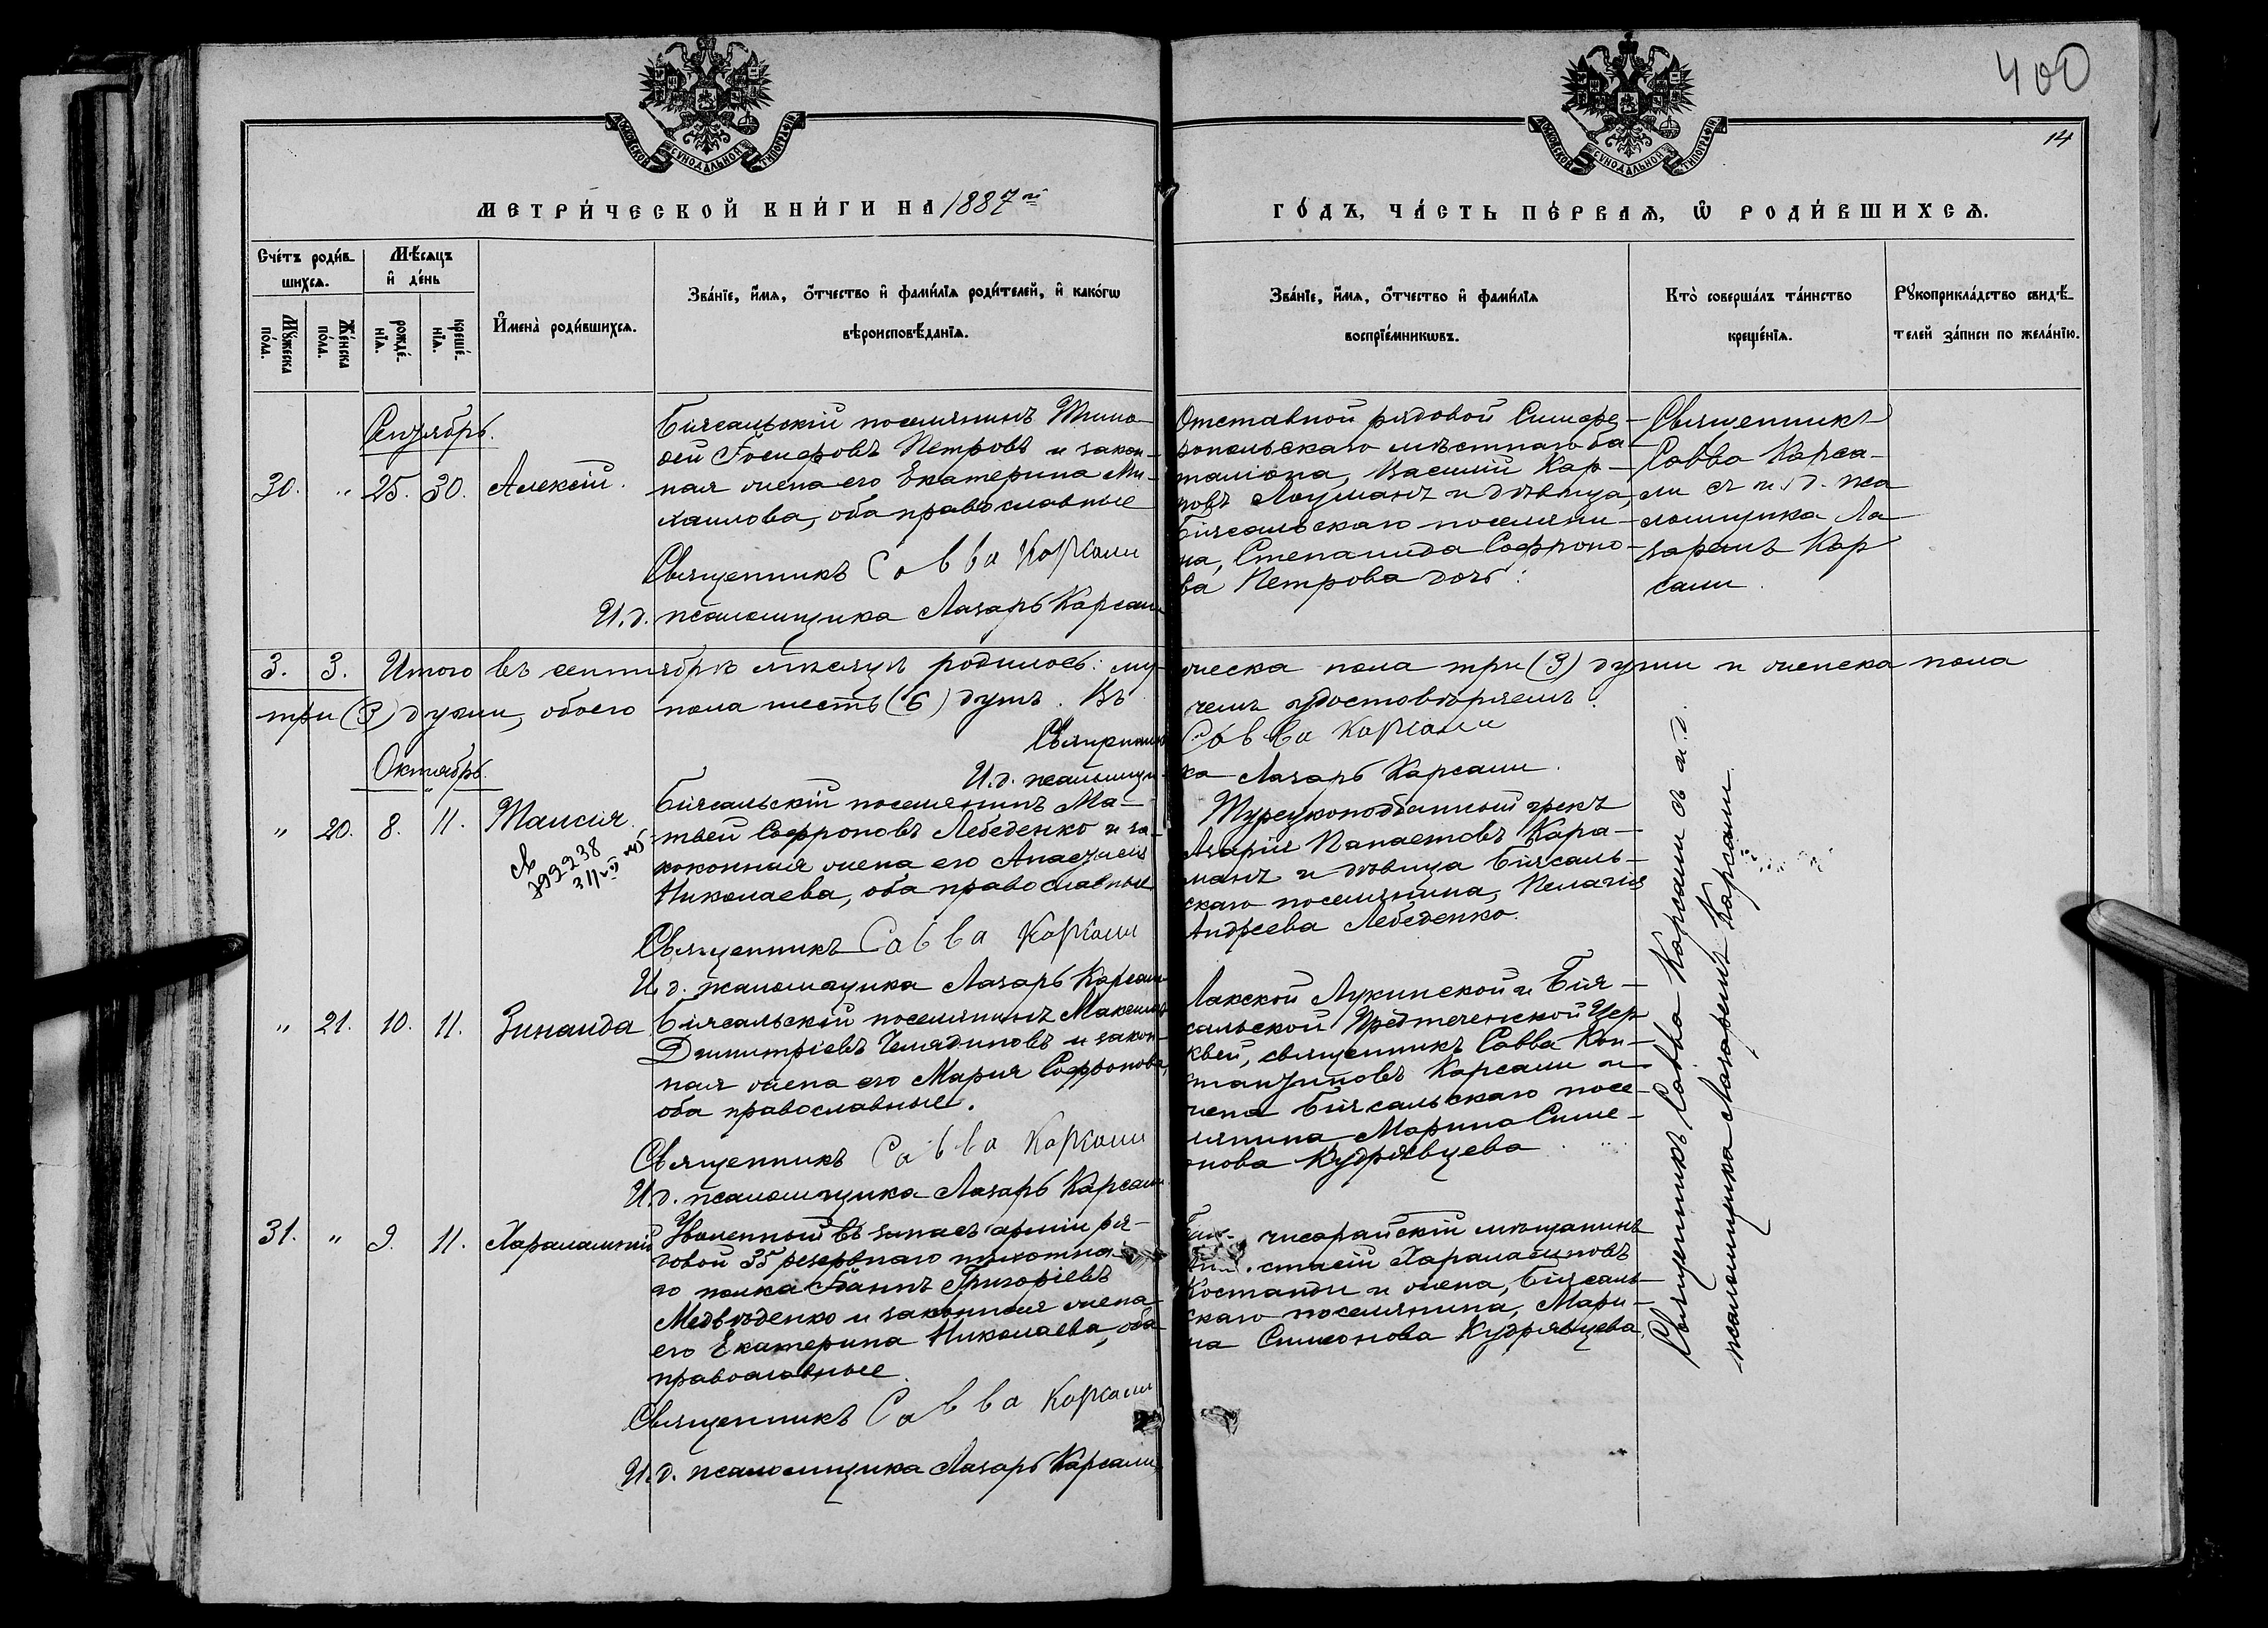 400
14
МОСКОВСКОЙ СѴНОДАЛЬНОЙ ТИПОГРАФІИ
МОСКОВСКОЙ СѴНОДАЛЬНОЙ ТИПОГРАФІИ
МЕТРИ́ЧЕСКОЙ КНИ́ГИ НА 1887 й
ГО́ДЪ, ЧА́СТЬ ПЕ́РВАѦ, Ѿ РОДИ́ВШИХСѦ.
Сче́тъ роди́в-
шихсѧ.
Мѣ́сѧцъ
и де́нь
Мꙋ́жеска
по́ла.
Же́нска
по́ла.
рожде́-
нїѧ.
креще́-
нїѧ.
Имена̀ роди́вшихсѧ.
Зва́нїе, и́мѧ, ѻ́тчество и фами́лїѧ роди́телей, и како́гѡ
вѣроисповѣ́данїѧ.
Зва́нїе, и́мѧ, ѻ́тчество и фами́лїѧ
воспрїе́мникѡвъ.
Кто̀ соверша́лъ та́инство
креще́нїѧ.
Рꙋкоприкла́дство свидѣ́-
телей за́писи по жела́нїю.
Сентябрь.
30. " 25. 30. Алексій.
Біясальскій поселянинъ Тимо-
фей Гомеровъ Петровъ и закон-
ная жена его Екатерина Ми-
хаилова, оба православные
Священникъ Савва Карсали
И.д. псаломщика Лазарь Карсали
Отставной рядовой Симфе-
ропольскаго мѣстнаго ба-
таліона, Василій Кар-
повъ Лоуманъ и дѣвица,
Біясальскаго поселяни-
на, Степанида Софроно-
ва Петрова дочь.
Священникъ
Савва Карса-
ли съ и.д. пса
ломщика Ла
заремъ Кар
сали.
3. 3. Итого въ сентябрѣ мѣсяцѣ родилось: му-
жеска пола три (3) души и женска пола
три (3) души, обоего пола шесть (6) душъ. Въ
чемъ удостовѣряемъ.
Священникъ Савва Карсали
И.д. псаломщика Лазарь Карсали.
Октябрь.
" 20. 8. 11. Таисія.
св
799238
Біясальскій поселянинъ Ма-
твей Софроновъ Лебеденко и за-
коконная жена его Анастасія
Николаева, оба православные
Священникъ Савва Карсали
И.д. псаломщика Лазарь Карсали
Турецкоподданный грекъ
Азарія Панаетовъ Кара-
манъ и дѣвица Біясаль-
скаго поселянина, Пелагія
Андреева Лебеденко.
" 21. 10. 11. Зинаида
Біясальскій поселянинъ Максимъ
Димитріевъ Челядиновъ и закон-
ная жена его Мария Софронова,
оба православные.
Священникъ Савва Карсали
И.д. псаломщика Лазарь Карсали
Лакской Лукинской и Бія-
сальской Предтеченской Цер
квей, священникъ Савва Кон-
стантиновъ Карсали и
жена Біясальскаго посе-
лянина Марина Симе-
онова Кудрявцева
31. " 9. 11. Харалампій
Уволенный въ запасъ арміи ря-
довой 35 резервнаго пѣхотна-
го полка Іоаннъ Григоріевъ
Медвѣденко и законная жена
его Екатерина Николаева, оба
православные.
Священникъ Савва Карсали
И.д. псаломщика Лазарь Карсали
чисарайскій мѣщанинъ
стасій Хараламповъ
Костанди и жена, Біясаль-
скаго поселянина, Мари-
на Симеонова Кудрявцева
Священникъ Савва Карсали съ и.д.
псаломщика Лазаремъ Карсали.